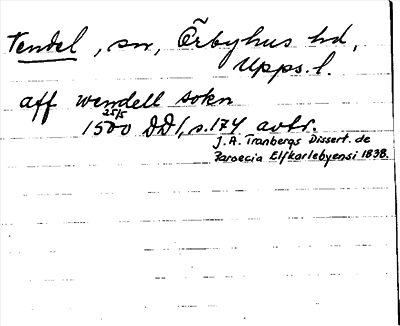 Tendel, sn, Örbyhus hd,
Upps. l.
aff wendell sokn
25/5
1500 DD1, s. 174 avtr.
J.A. Tranbergs Dissert. de
Paroecia Elfkarlebyensi 1838.